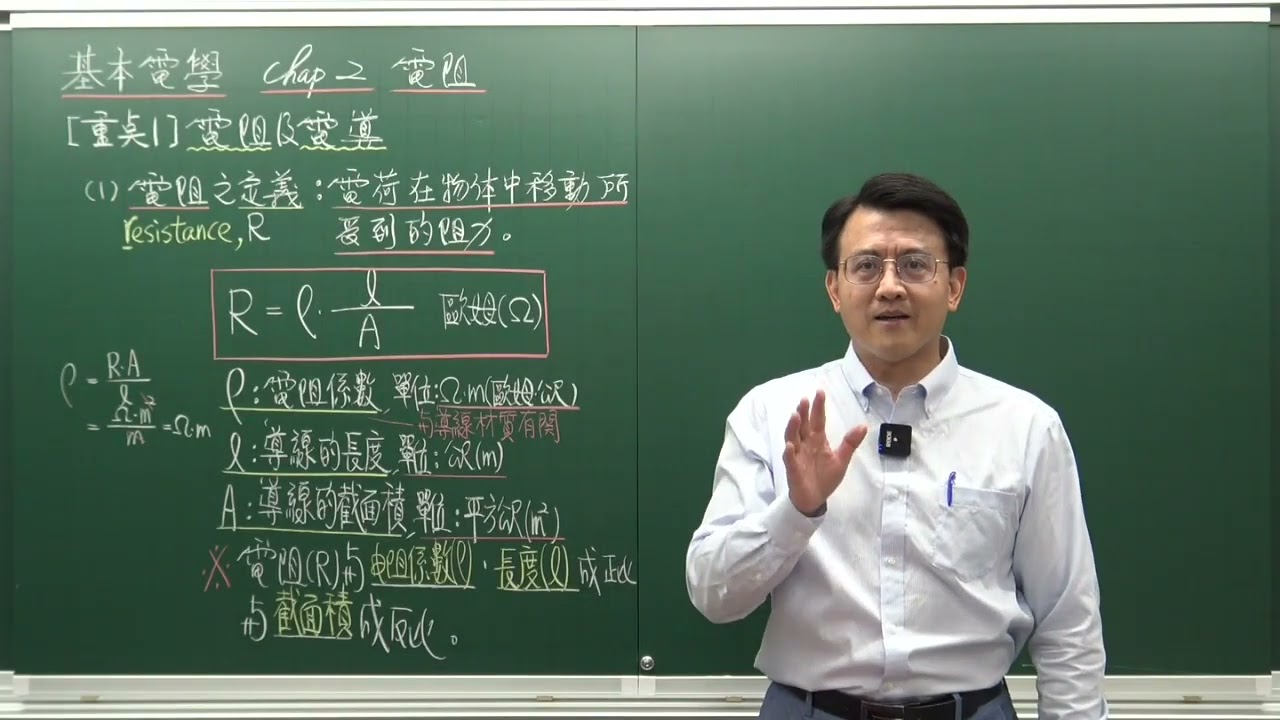 基本電學 Chap 2 電阻
[重点1]電阻及電導
(1) 電阻之定義:電荷在物体中移動所
resistance, R 受到的阻力。
R = ρ · l/A 歐姆(Ω)
ρ = R·A/l
= Ω·m²/m = Ω·m
ρ:電阻係數,單位:Ω·m(歐姆·公尺)
与導線材質有関
l:導線的長度,單位:公尺(m)
A:導線的截面積,單位:平方公尺(m²)
※ 電阻(R)与電阻係數(ρ)·長度(l)成正比
与截面積成反比。